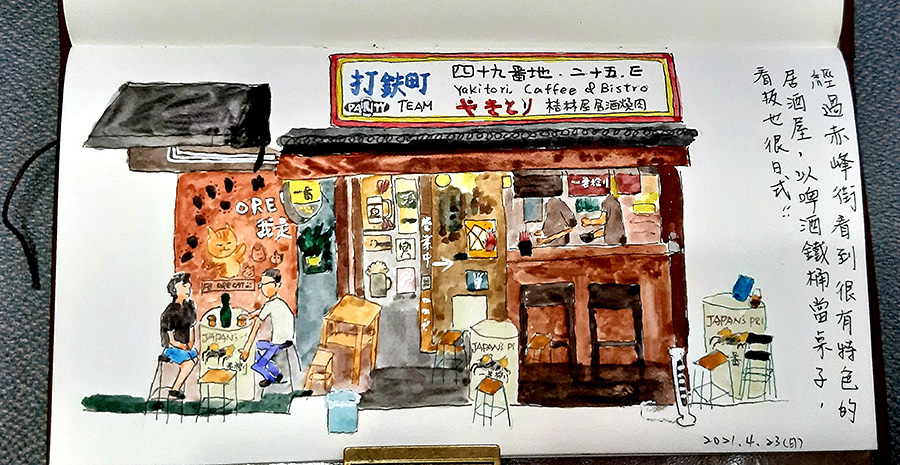 打鉄町
四十九番地.二十五.E
Yakitori. Caffee & Bistro
PARTY TEAM
やきとり 桂林居居酒燒肉
經過赤峰街看到很有特色的
居酒屋,以啤酒鐵桶當桌子,
看板也很日式!!
ORE
一番
營業中
JAPAN'S
JAPAN'S PI
JAPAN'S PRI
2021.4.23(日)